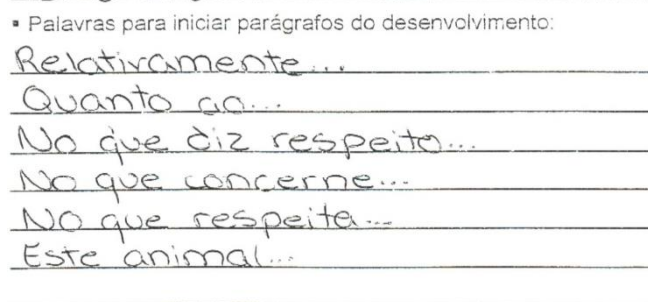 ▪ Palavras para iniciar parágrafos do desenvolvimento:
Relativamente...
Quanto ao...
No que diz respeito...
No que concerne...
No que respeita...
Este animal...